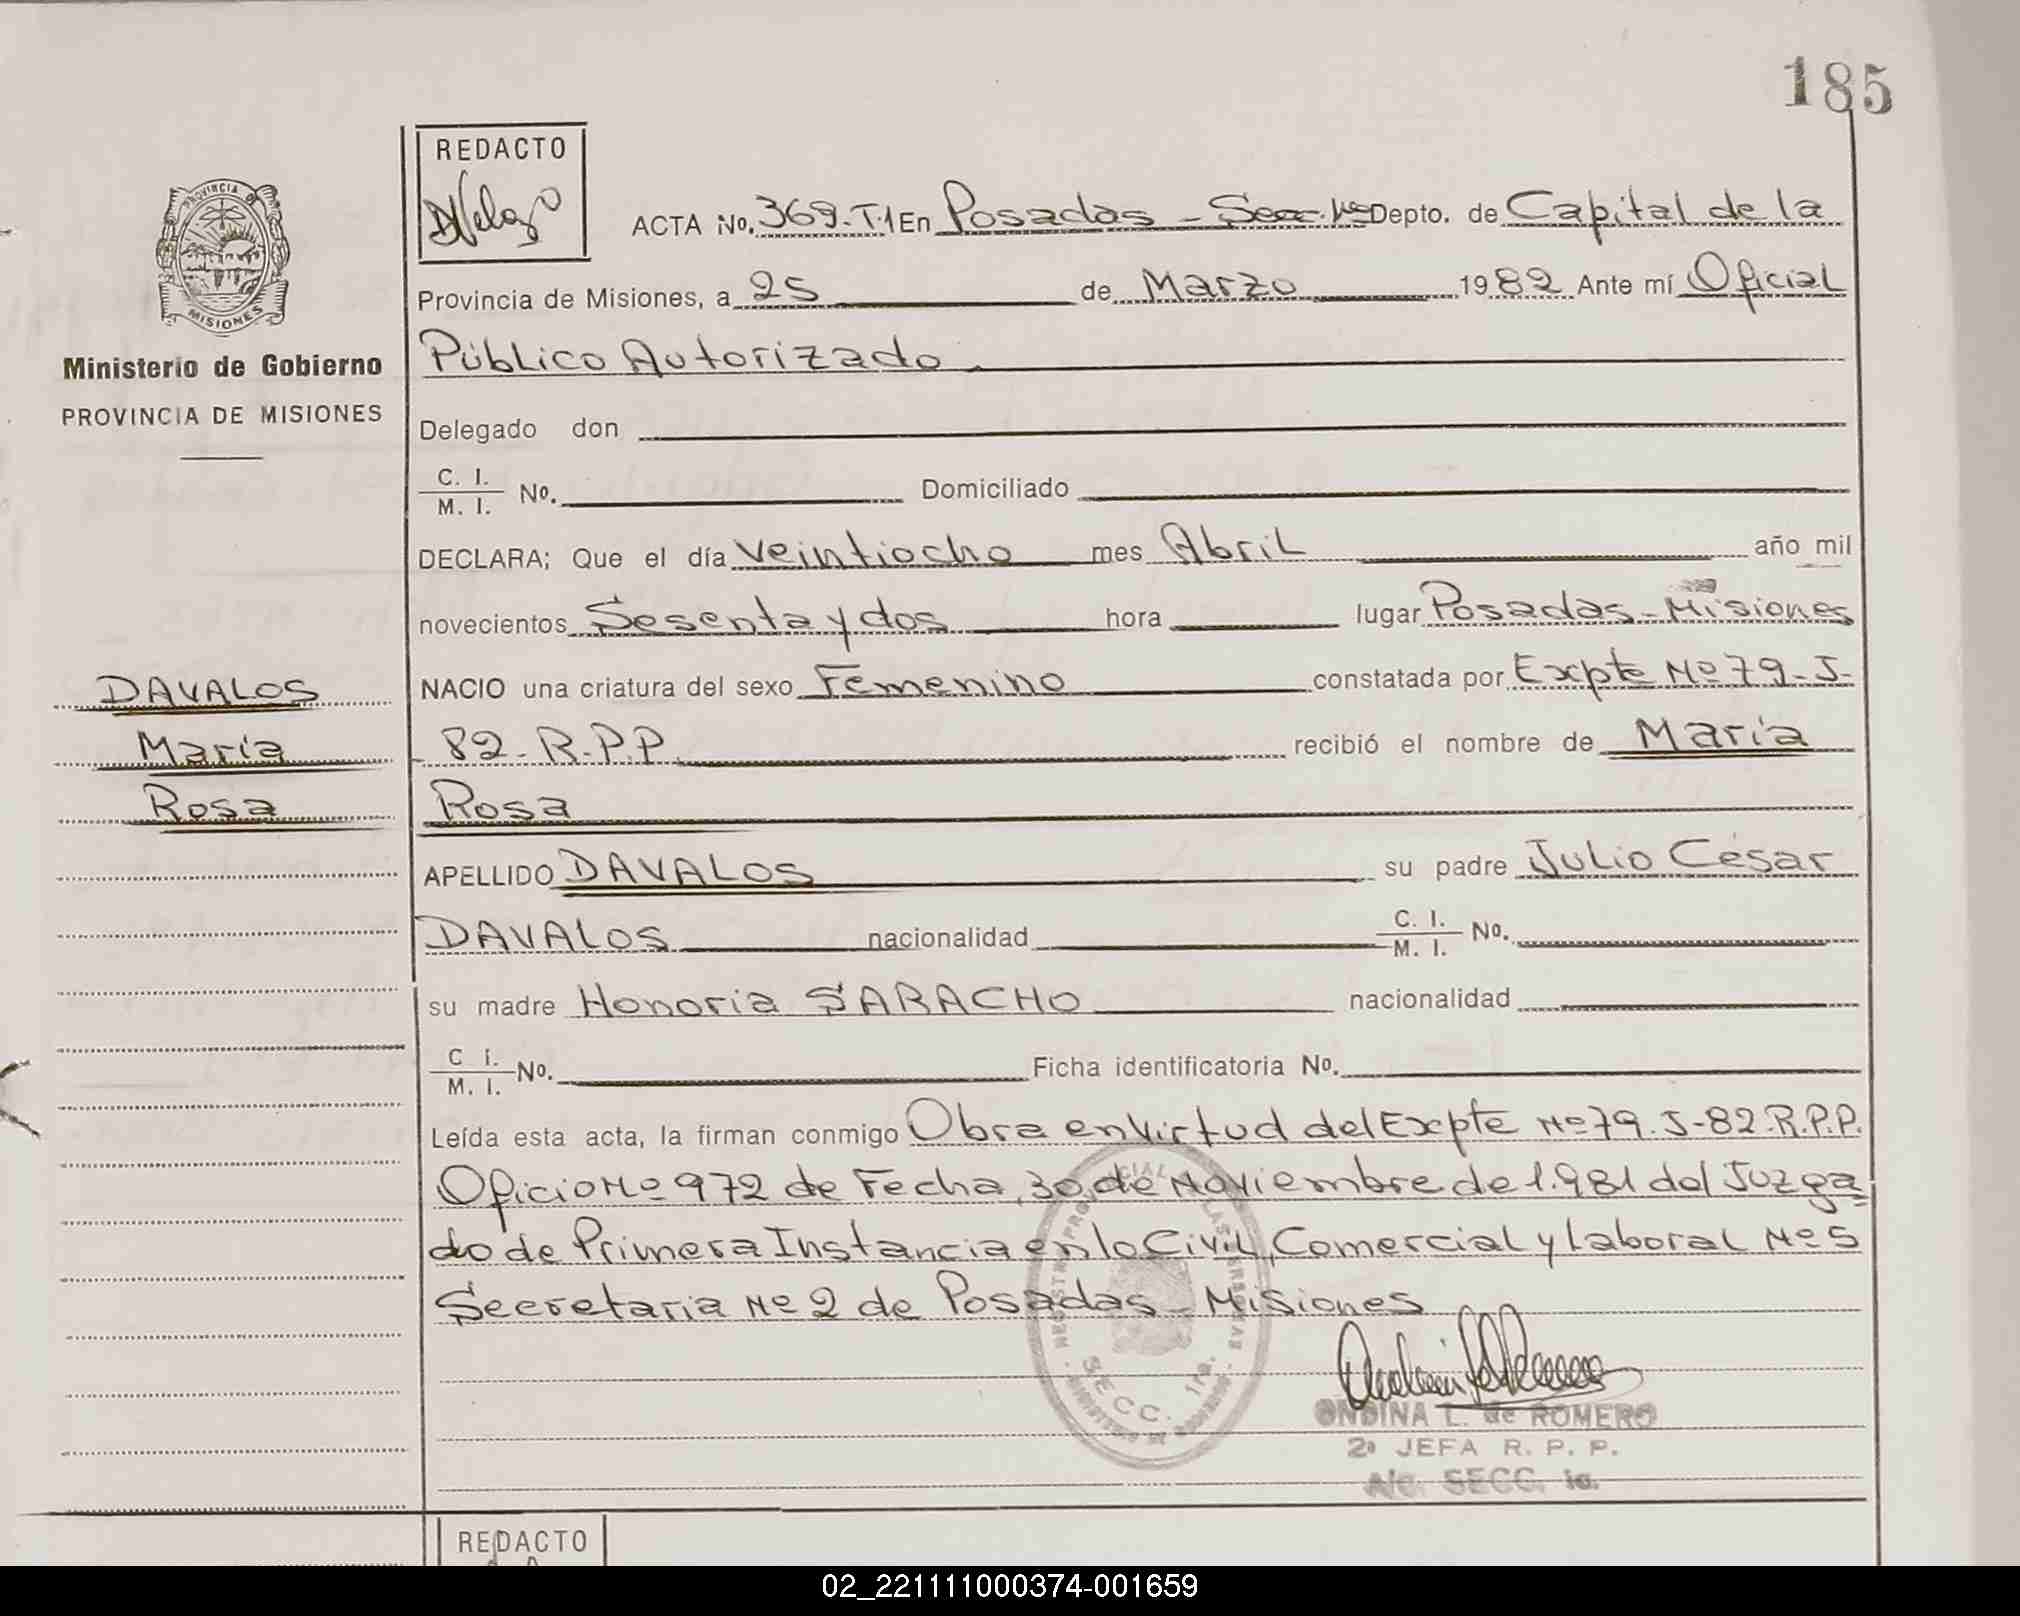 185
REDACTO
ACTA No. 369-T.1 En Posadas - Secc. 1ra Depto. de Capital de la
Provincia de Misiones, a 25 de Marzo 1982 Ante mí Oficial
Público Autorizado
Delegado don
C. I. / M. I. No. Domiciliado
DECLARA; Que el día veintiocho mes Abril año mil
novecientos Sesenta y dos hora lugar Posadas - Misiones
NACIO una criatura del sexo Femenino constatada por Expte Nº 79-J-
82-R.P.P. recibió el nombre de María
Rosa
APELLIDO DAVALOS su padre Julio César
DAVALOS nacionalidad C. I. / M. I. No.
su madre Honoria SARACHO nacionalidad
C I. / M. I. No. Ficha identificatoria No.
Leída esta acta, la firman conmigo Obra en virtud del Expte Nº 79-J-82-R.P.P.
Oficio Nº 972 de Fecha, 30, de Noviembre de 1.981 del Juzga
do de Primera Instancia en lo Civil, Comercial y Laboral Nº 5
Secretaria Nº 2 de Posadas - Misiones
SECC. 1ra.
ONDINA L. de ROMERO
2ª JEFA R. P. P.
A/c. SECC. 1a.
PROVINCIA DE
MISIONES
Ministerio de Gobierno
PROVINCIA DE MISIONES
DAVALOS
María
Rosa
REDACTO
02_221111000374-001659